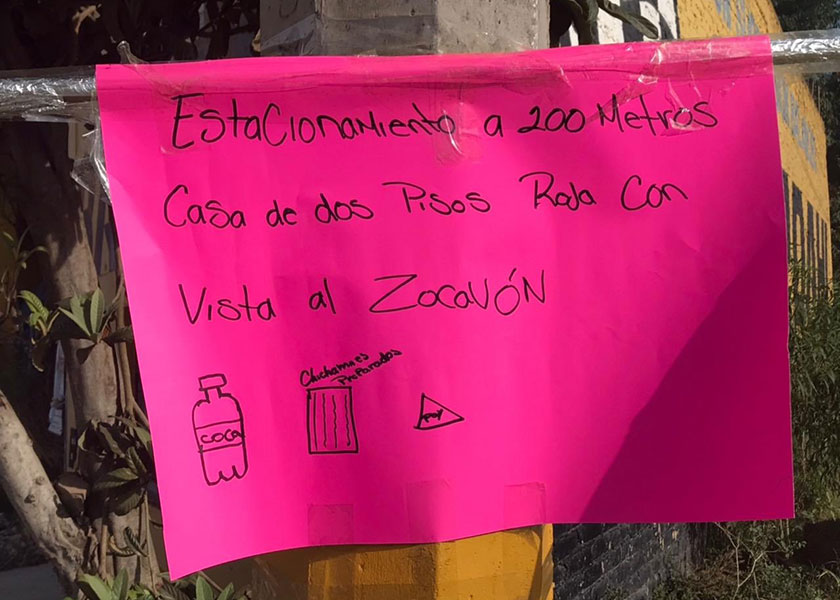 Estacionamiento a 200 Metros
Casa de dos Pisos Roja Con
Vista al ZocavÓN
Chicharrones
Preparados
COCA